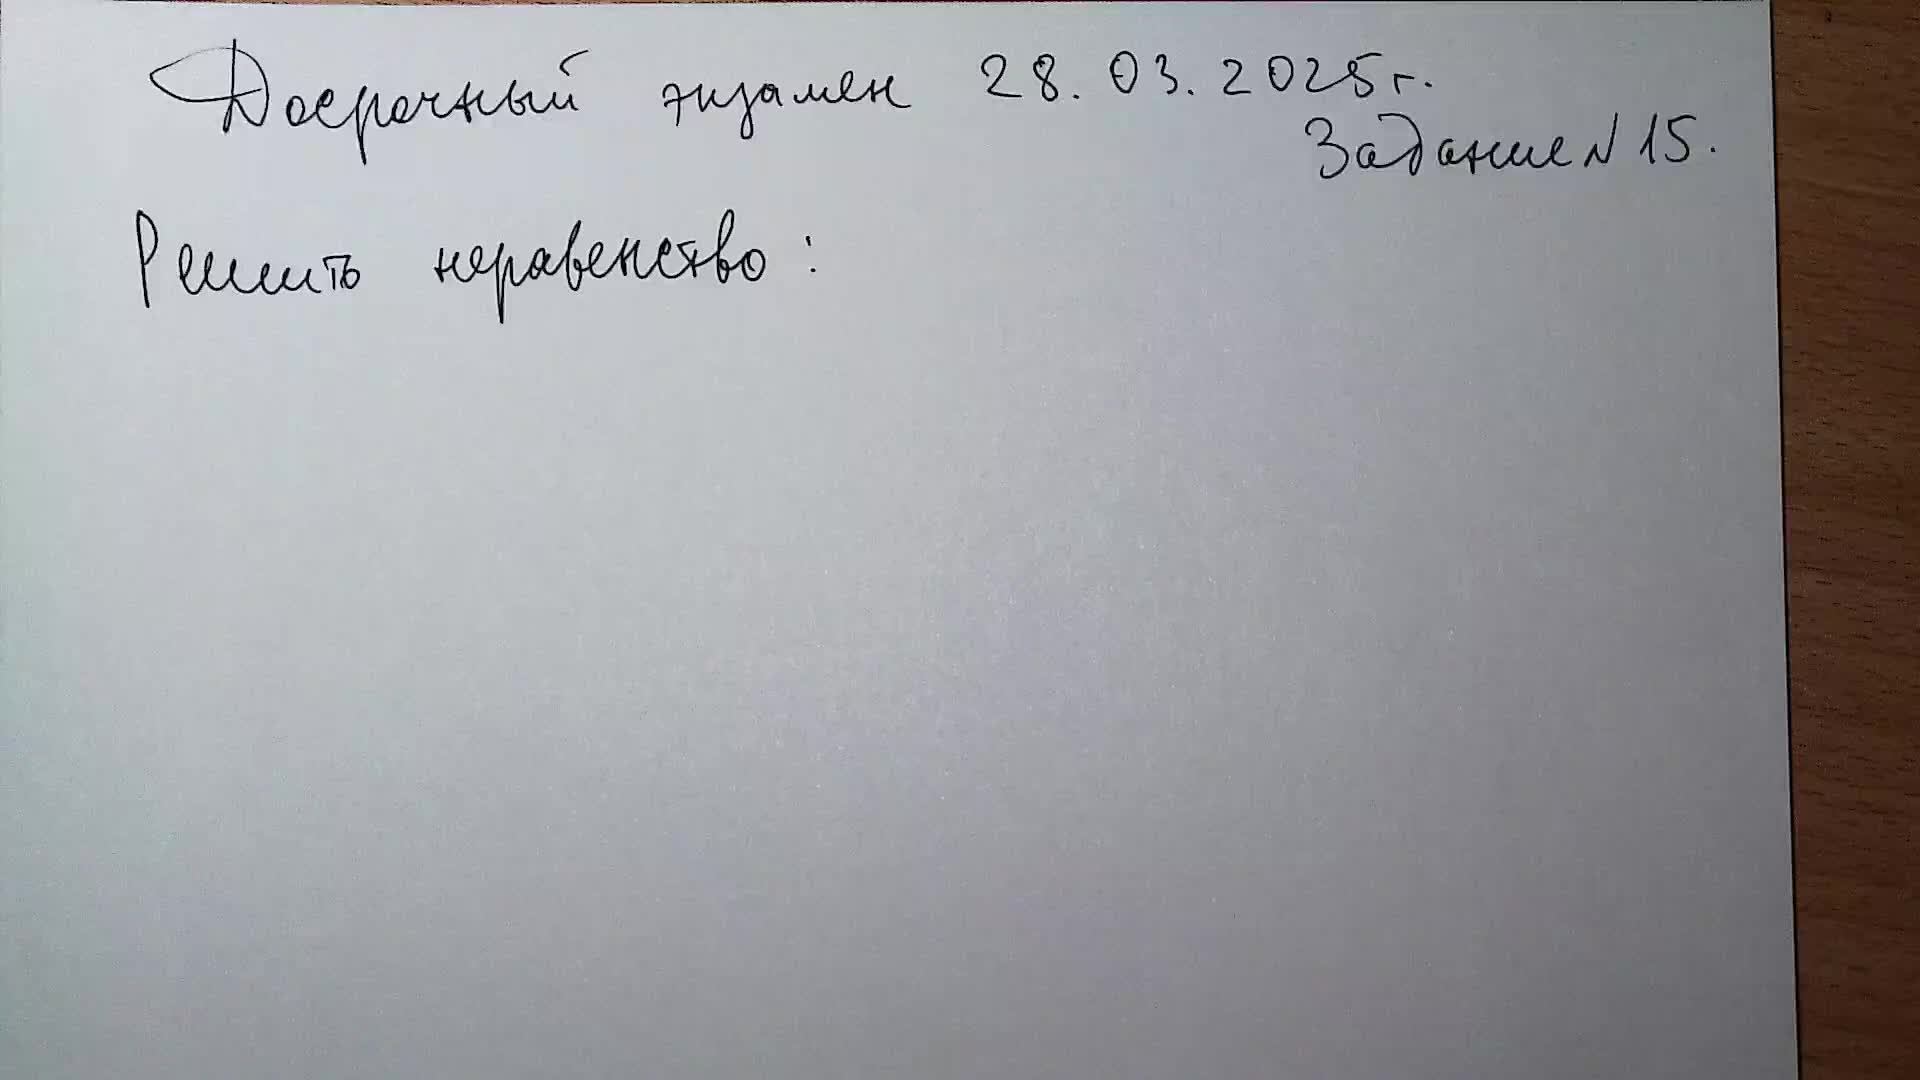 Досрочный экзамен 28.03.2025г.
Задание N 15.
Решить неравенство: